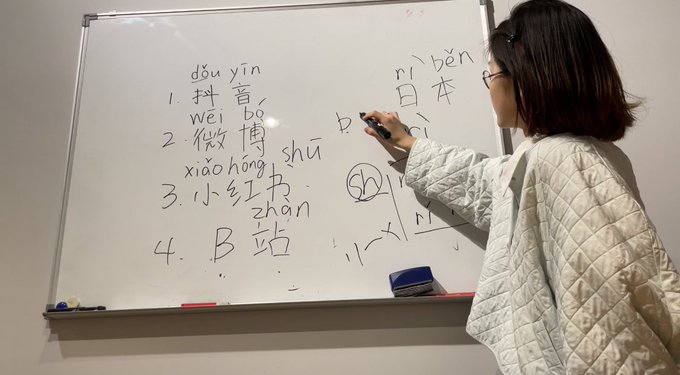 dǒu yīn
1. 抖音
wēi bó
2. 微博
xiǎo hóng shū
3. 小红书
zhàn
4. B 站
rì běn
日本
b
rì
sh